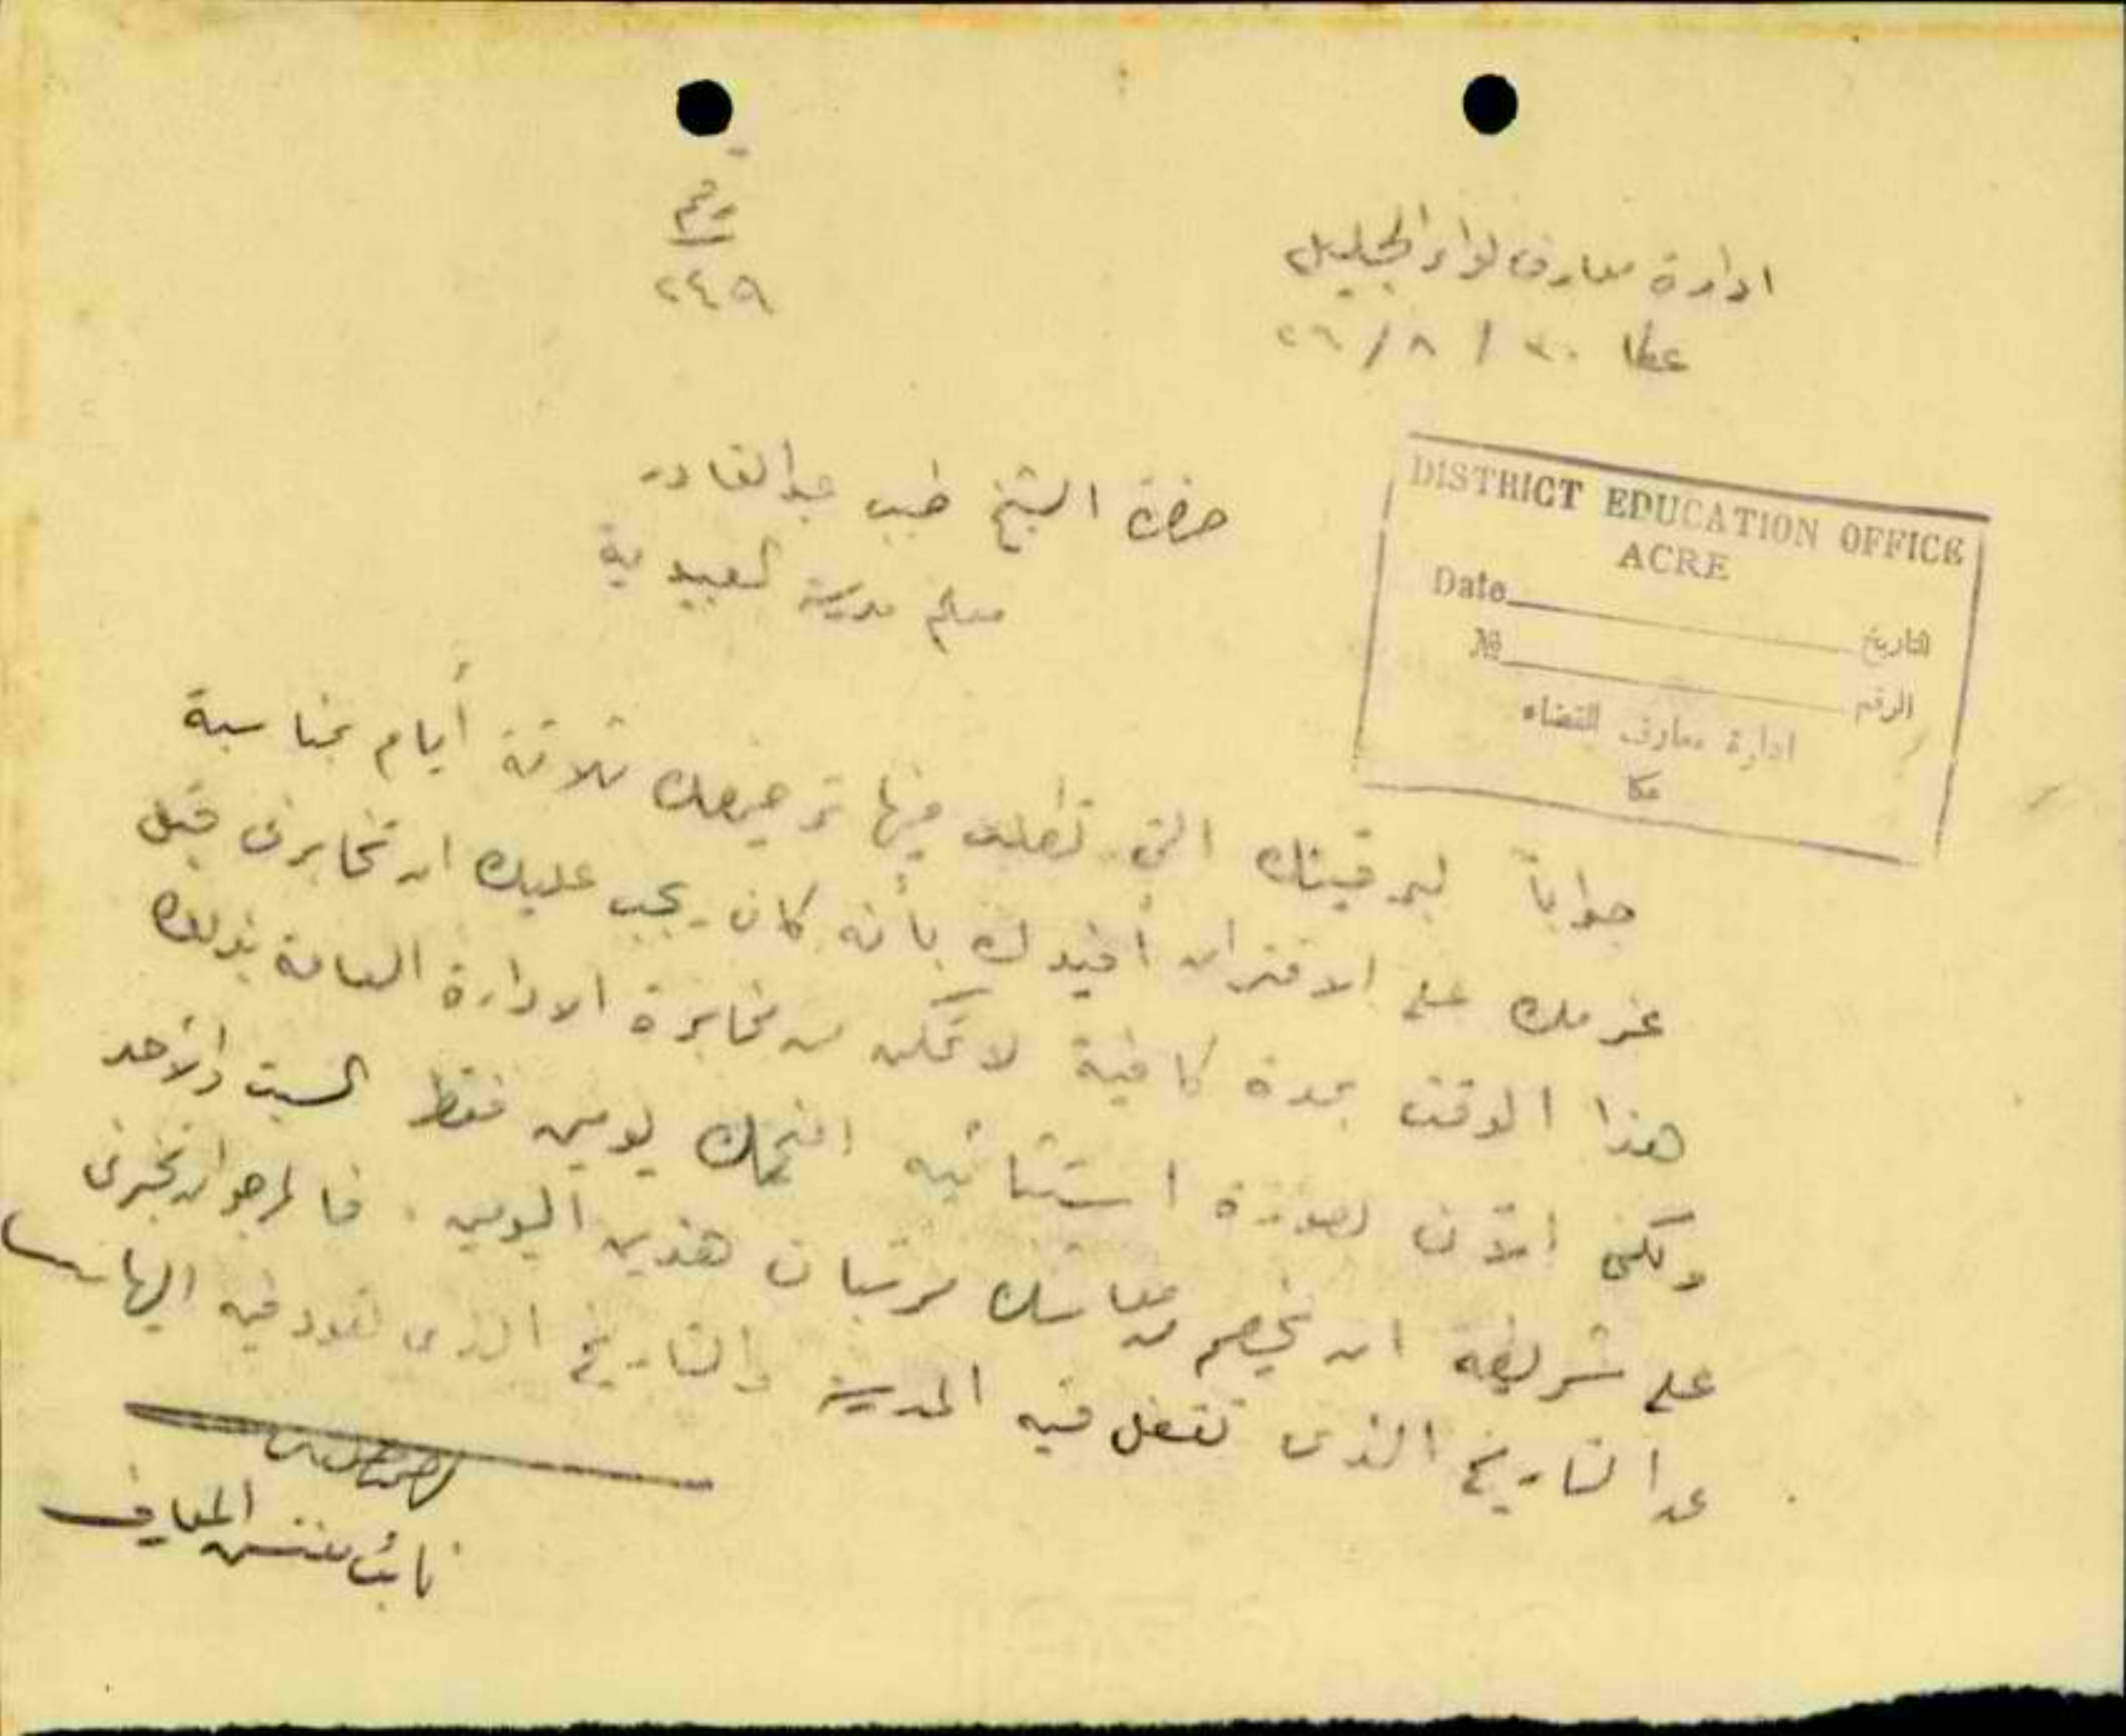 ادارة معارف لواء الجليل
عكا ٣٠ / ٨ / ٢٦
رقم
٢٤٩
DISTRICT EDUCATION OFFICE
ACRE
Date التاريخ
№ الرقم
ادارة معارف القضاء
عكا
حضرة الشيخ طيب عبد القادر
معلم مدرسة العبيدية
جواباً لبرقيتك التي تطلب فيها ترخيصك ثلاثة أيام بمناسبة
عزمك على الاقتران أفيدك بأنه كان يجب عليك ان تخابرني قبل
هذا الوقت بمدة كافية لاتمكن من مخابرة الادارة العامة بذلك
ولكني الآن بصورة استثنائية امنحك يومين فقط السبت والأحد
على شريطة ان يخصم من معاشك مرتبات هذين اليومين . فالرجو ان تخبرني
عن التاريخ الذي تقفل فيه المدرسة والتاريخ الذي تعود فيه اليها
نائب مفتش المعارف